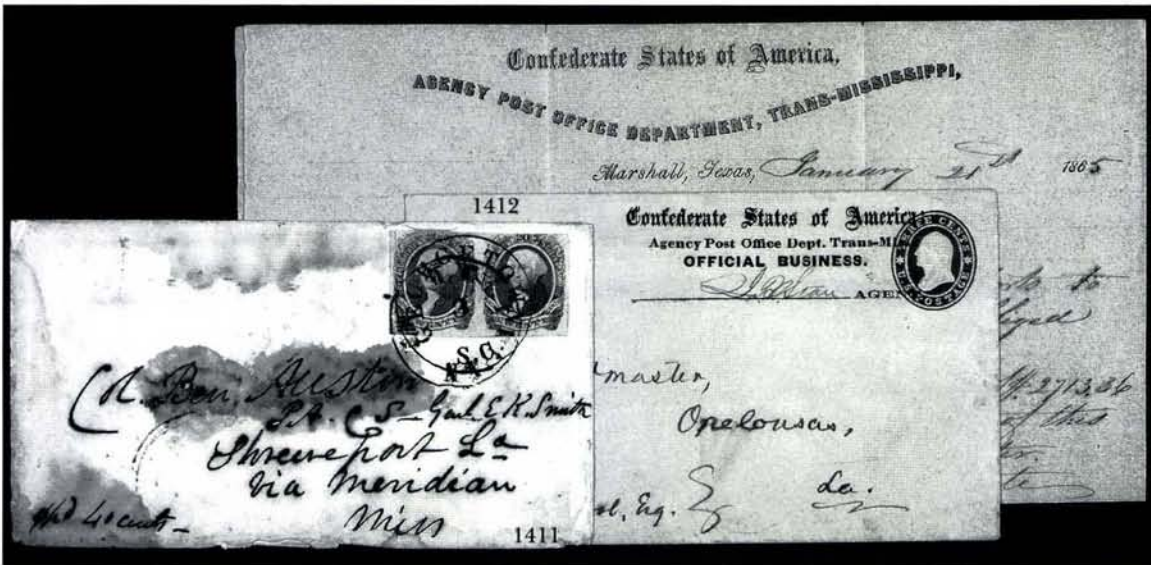 Confederate States of America,
AGENCY POST OFFICE DEPARTMENT, TRANS-MISSISSIPPI,
Marshall, Texas, January 21st 1865
to
2713.36
of this
1412
Confederate States of America,
Agency Post Office Dept. Trans-Mi
OFFICIAL BUSINESS.
AGEN
THREE CENTS
U.S. POSTAGE
master,
Opelousas,
La.
Esq.
S.C.
Col. Ben. Austin
P.A. C S - Genl. E. K. Smith
Shreveport La
via Meridian
Miss
40 cents
1411